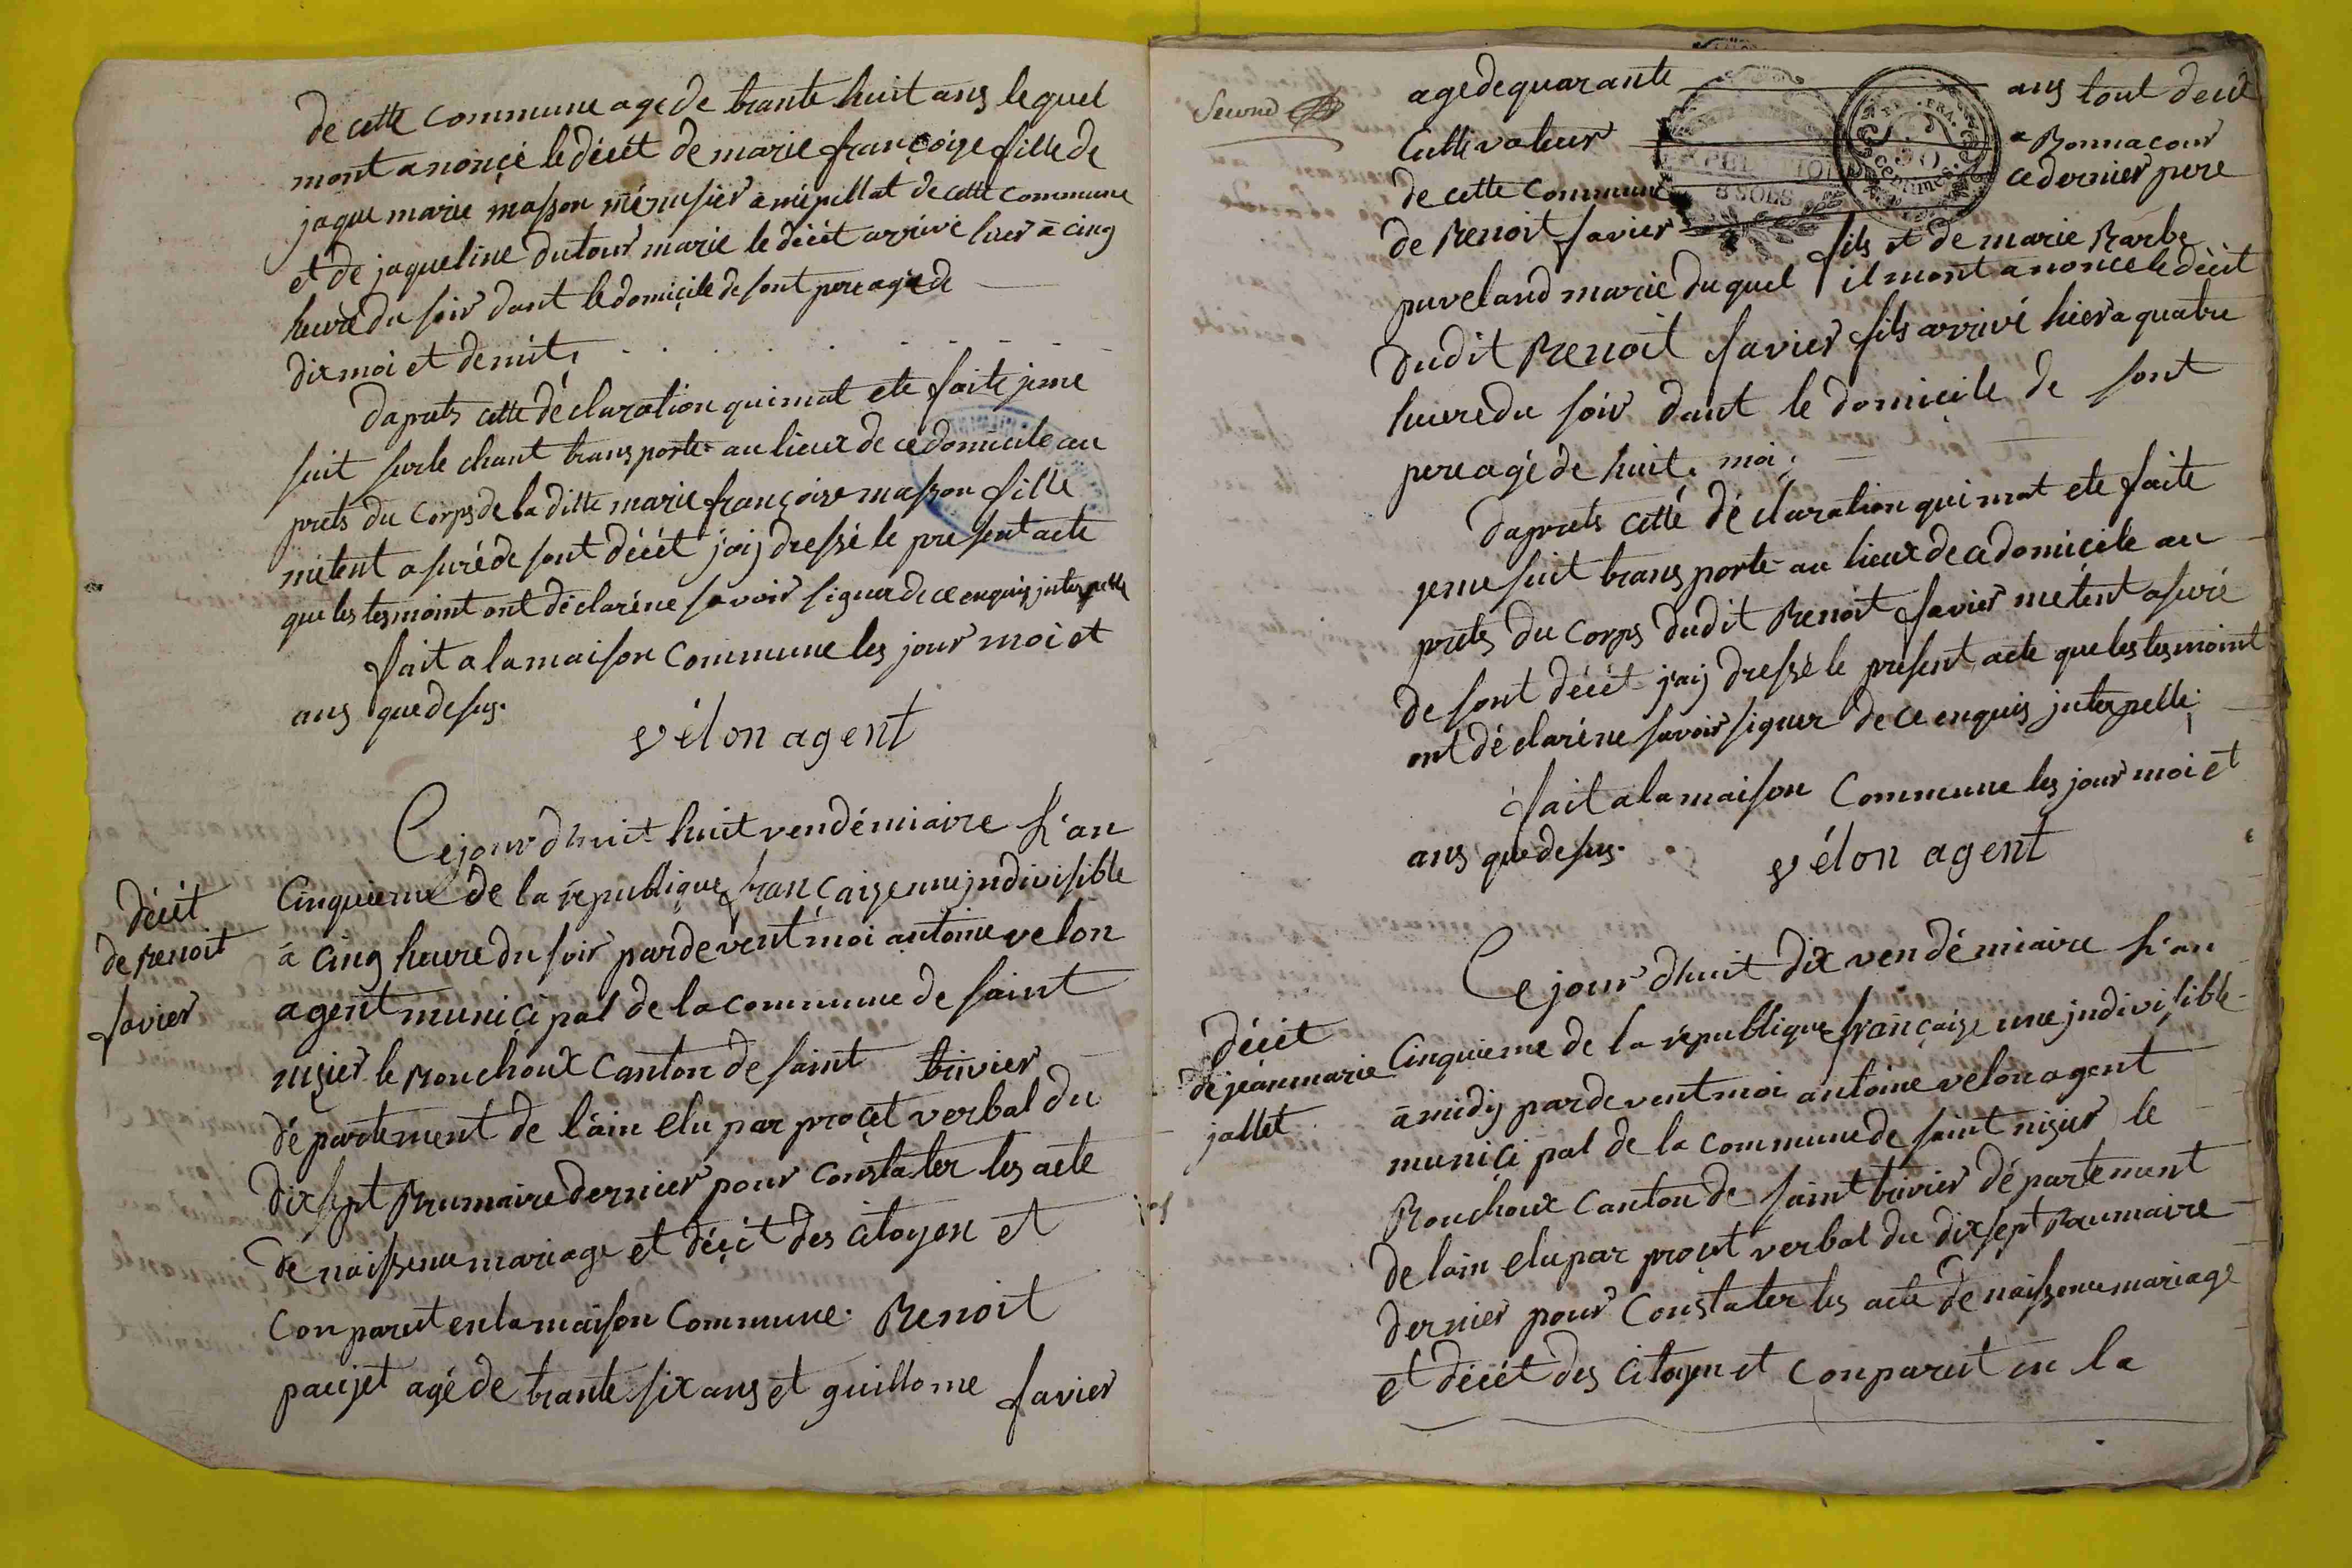 de cette commune agé de trante huit ans lequel
mont anoncé le décét de marie françoise fille de
jaque marie masson ménusier a mépillat de cette commune
et de jaqueline dutour marié le décét arrivé hier à cinq
heure du soir dant le domicile de sont pere agée de
dix moi et demit.
daprets cette déclaration qui mat ete faite je me
suit sur le chant transporté au lieux de ce domicile au
prets du corps de la ditte marie françoise masson fille
métent asuré de sont décét j'aij dressé le present acte
que les tesmoint ont déclaré ne savoir signer de ce enquis interpellé
fait a la maison commune les jour moi et
ans que desus.
vélon agent
décét
de Benoit
favier
Cejourdhuit huit vendémiaire L'an
Cinquieme de la république française une indivisible
à cinq heure du soir pardevent moi antoine velon
agent municipal de la commune de saint
nisier le Bouchoux canton de saint trivier
département de l'ain elu par procet verbal du
dix sept Brumaire dernier pour constater les acte
de naissence mariage et décét des citoyen et
Conparut en la maison Commune. Benoit
paujet agé de trante six ans et guillome favier
Second
agé de quarante ans tout deux
Cultivateur a Bonnacour
de cette Commune ce dernier pere
de Benoit favier fils et de marie Barbe
puveland marié duquel il mont anoncé le décét
dudit Benoit favier fils arrivé hier a quatre
heure du soir dant le domicile de sont
pere agé de huit moi.
daprets cetté déclaration qui mat ete faite
je me suit transporté au lieux de ce domicile au
prets du corps dudit Benoit favier métent asuré
de sont décét j'aij dressé le present acte que les tesmoint
ont déclaré ne savoir signer de ce enquis interpellé
fait a la maison Commune les jour moi et
ans que desus.
vélon agent
décét
de jean marie
jallet
Cejourdhuit dix vendémiaire L'an
Cinquieme de la république française une indivisible
à midy pardevent moi antoine velon agent
municipal de la commune de saint nisier le
Bouchoux canton de saint trivier département
de lain elu par procet verbal du dix sept Brumaire
dernier pour Constater les acte de naissence mariage
et décét des Citoyen et Conparut en la